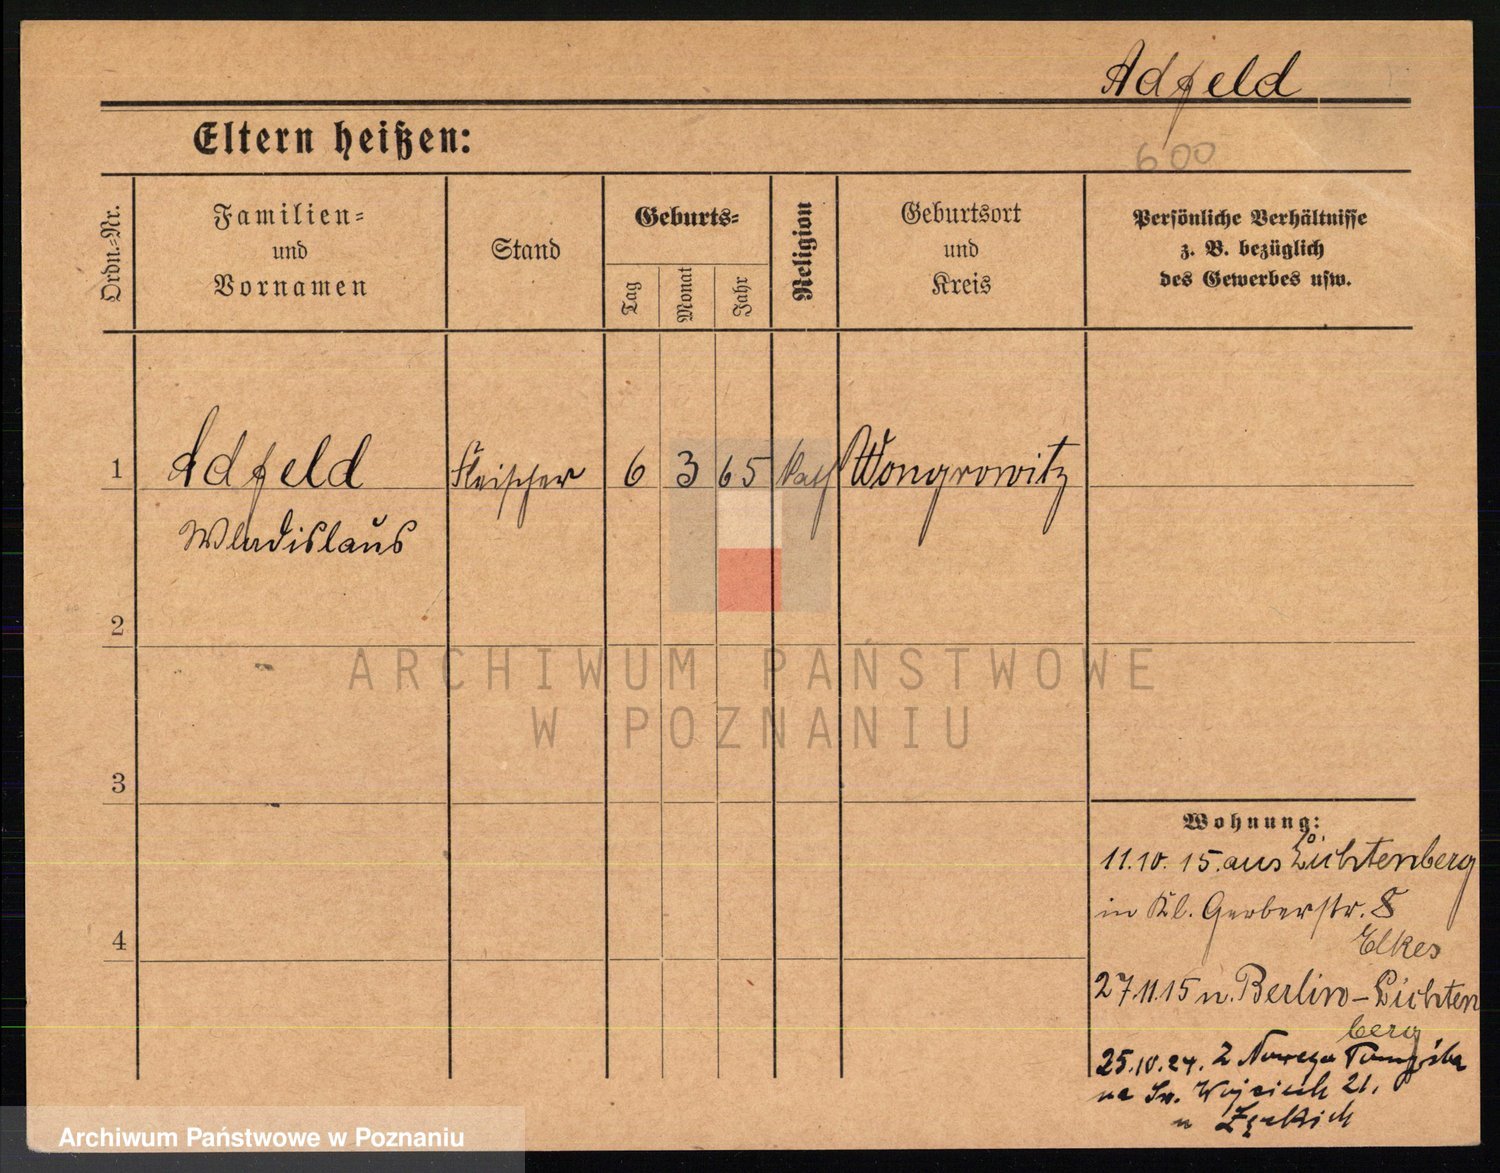 Adfeld
Eltern heißen:
600
Ordn.=Nr.
Familien=
und
Vornamen
Stand
Geburts=
Tag
Monat
Jahr
Religion
Geburtsort
und
Kreis
Persönliche Verhältnisse
z. B. bezüglich
des Gewerbes usw.
1
Adfeld
Fleischer
6
3
65
kath
Wongrowitz
Wladislaus
2
ARCHIWUM PAŃSTWOWE
W POZNANIU
3
Wohnung:
11.10.15. aus Lichtenberg
in Kl. Gerberstr. 8
Elkes
4
27.11.15 n. Berlin-Lichten
berg
25.10.24. Z Nowego Tomyśla
na Św. Wojciech 21.
u
Archiwum Państwowe w Poznaniu